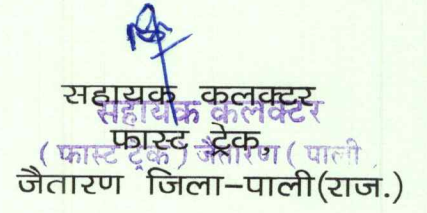 सहायक कलक्टर
सहायक कलेक्टर
फास्ट ट्रेक,
( फास्ट ट्रेक ) जैतारण ( पाली
जैतारण जिला-पाली(राज.)